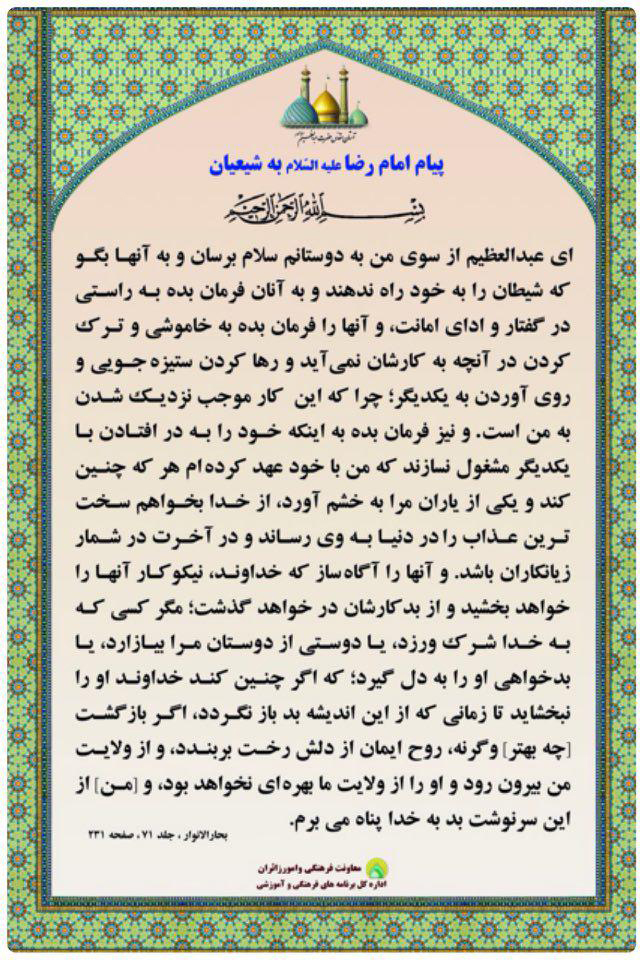 آستان مقدس حضرت عبدالعظیم
پیام امام رضا علیه السّلام به شیعیان
بِسْمِ اللهِ الرَّحْمٰنِ الرَّحیمِ
ای عبدالعظیم از سوی من به دوستانم سلام برسان و به آنها بگو
که شیطان را به خود راه ندهند و به آنان فرمان بده به راستی
در گفتار و ادای امانت، و آنها را فرمان بده به خاموشی و ترک
کردن در آنچه به کارشان نمی‌آید و رها کردن ستیزه جویی و
روی آوردن به یکدیگر؛ چرا که این کار موجب نزدیک شدن
به من است. و نیز فرمان بده به اینکه خود را به در افتادن با
یکدیگر مشغول نسازند که من با خود عهد کرده‌ام هر که چنین
کند و یکی از یاران مرا به خشم آورد، از خدا بخواهم سخت
ترین عذاب را در دنیا به وی رساند و در آخرت در شمار
زیانکاران باشد. و آنها را آگاه‌ساز که خداوند، نیکوکار آنها را
خواهد بخشید و از بدکارشان در خواهد گذشت؛ مگر کسی که
به خدا شرک ورزد، یا دوستی از دوستان مرا بیازارد، یا
بدخواهی او را به دل گیرد؛ که اگر چنین کند خداوند او را
نبخشاید تا زمانی که از این اندیشه بد باز نگردد، اگر بازگشت
[چه بهتر] وگرنه، روح ایمان از دلش رخت بربندد، و از ولایت
من بیرون رود و او را از ولایت ما بهره‌ای نخواهد بود، و [من] از
این سرنوشت بد به خدا پناه می برم.
بحارالانوار ، جلد ۷۱ ، صفحه ۲۳۱
معاونت فرهنگی و امور زائران
اداره کل برنامه های فرهنگی و آموزشی